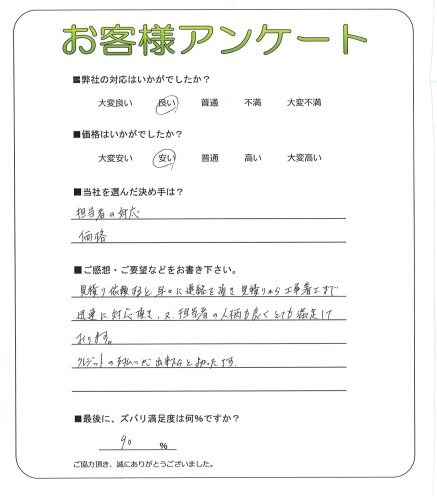 お客様アンケート
■弊社の対応はいかがでしたか？
大変良い 良い 普通 不満 大変不満
■価格はいかがでしたか？
大変安い 安い 普通 高い 大変高い
■当社を選んだ決め手は？
担当者の対応
価格
■ご感想・ご要望などをお書き下さい。
見積り依頼すると早々に連絡を頂き見積りから工事着工まで
迅速に対応頂き、又、担当者の人柄も良くとても満足して
おります。
クレジットの支払いが出来ると助かったです。
■最後に、ズバリ満足度は何％ですか？
90 ％
ご協力頂き、誠にありがとうございました。